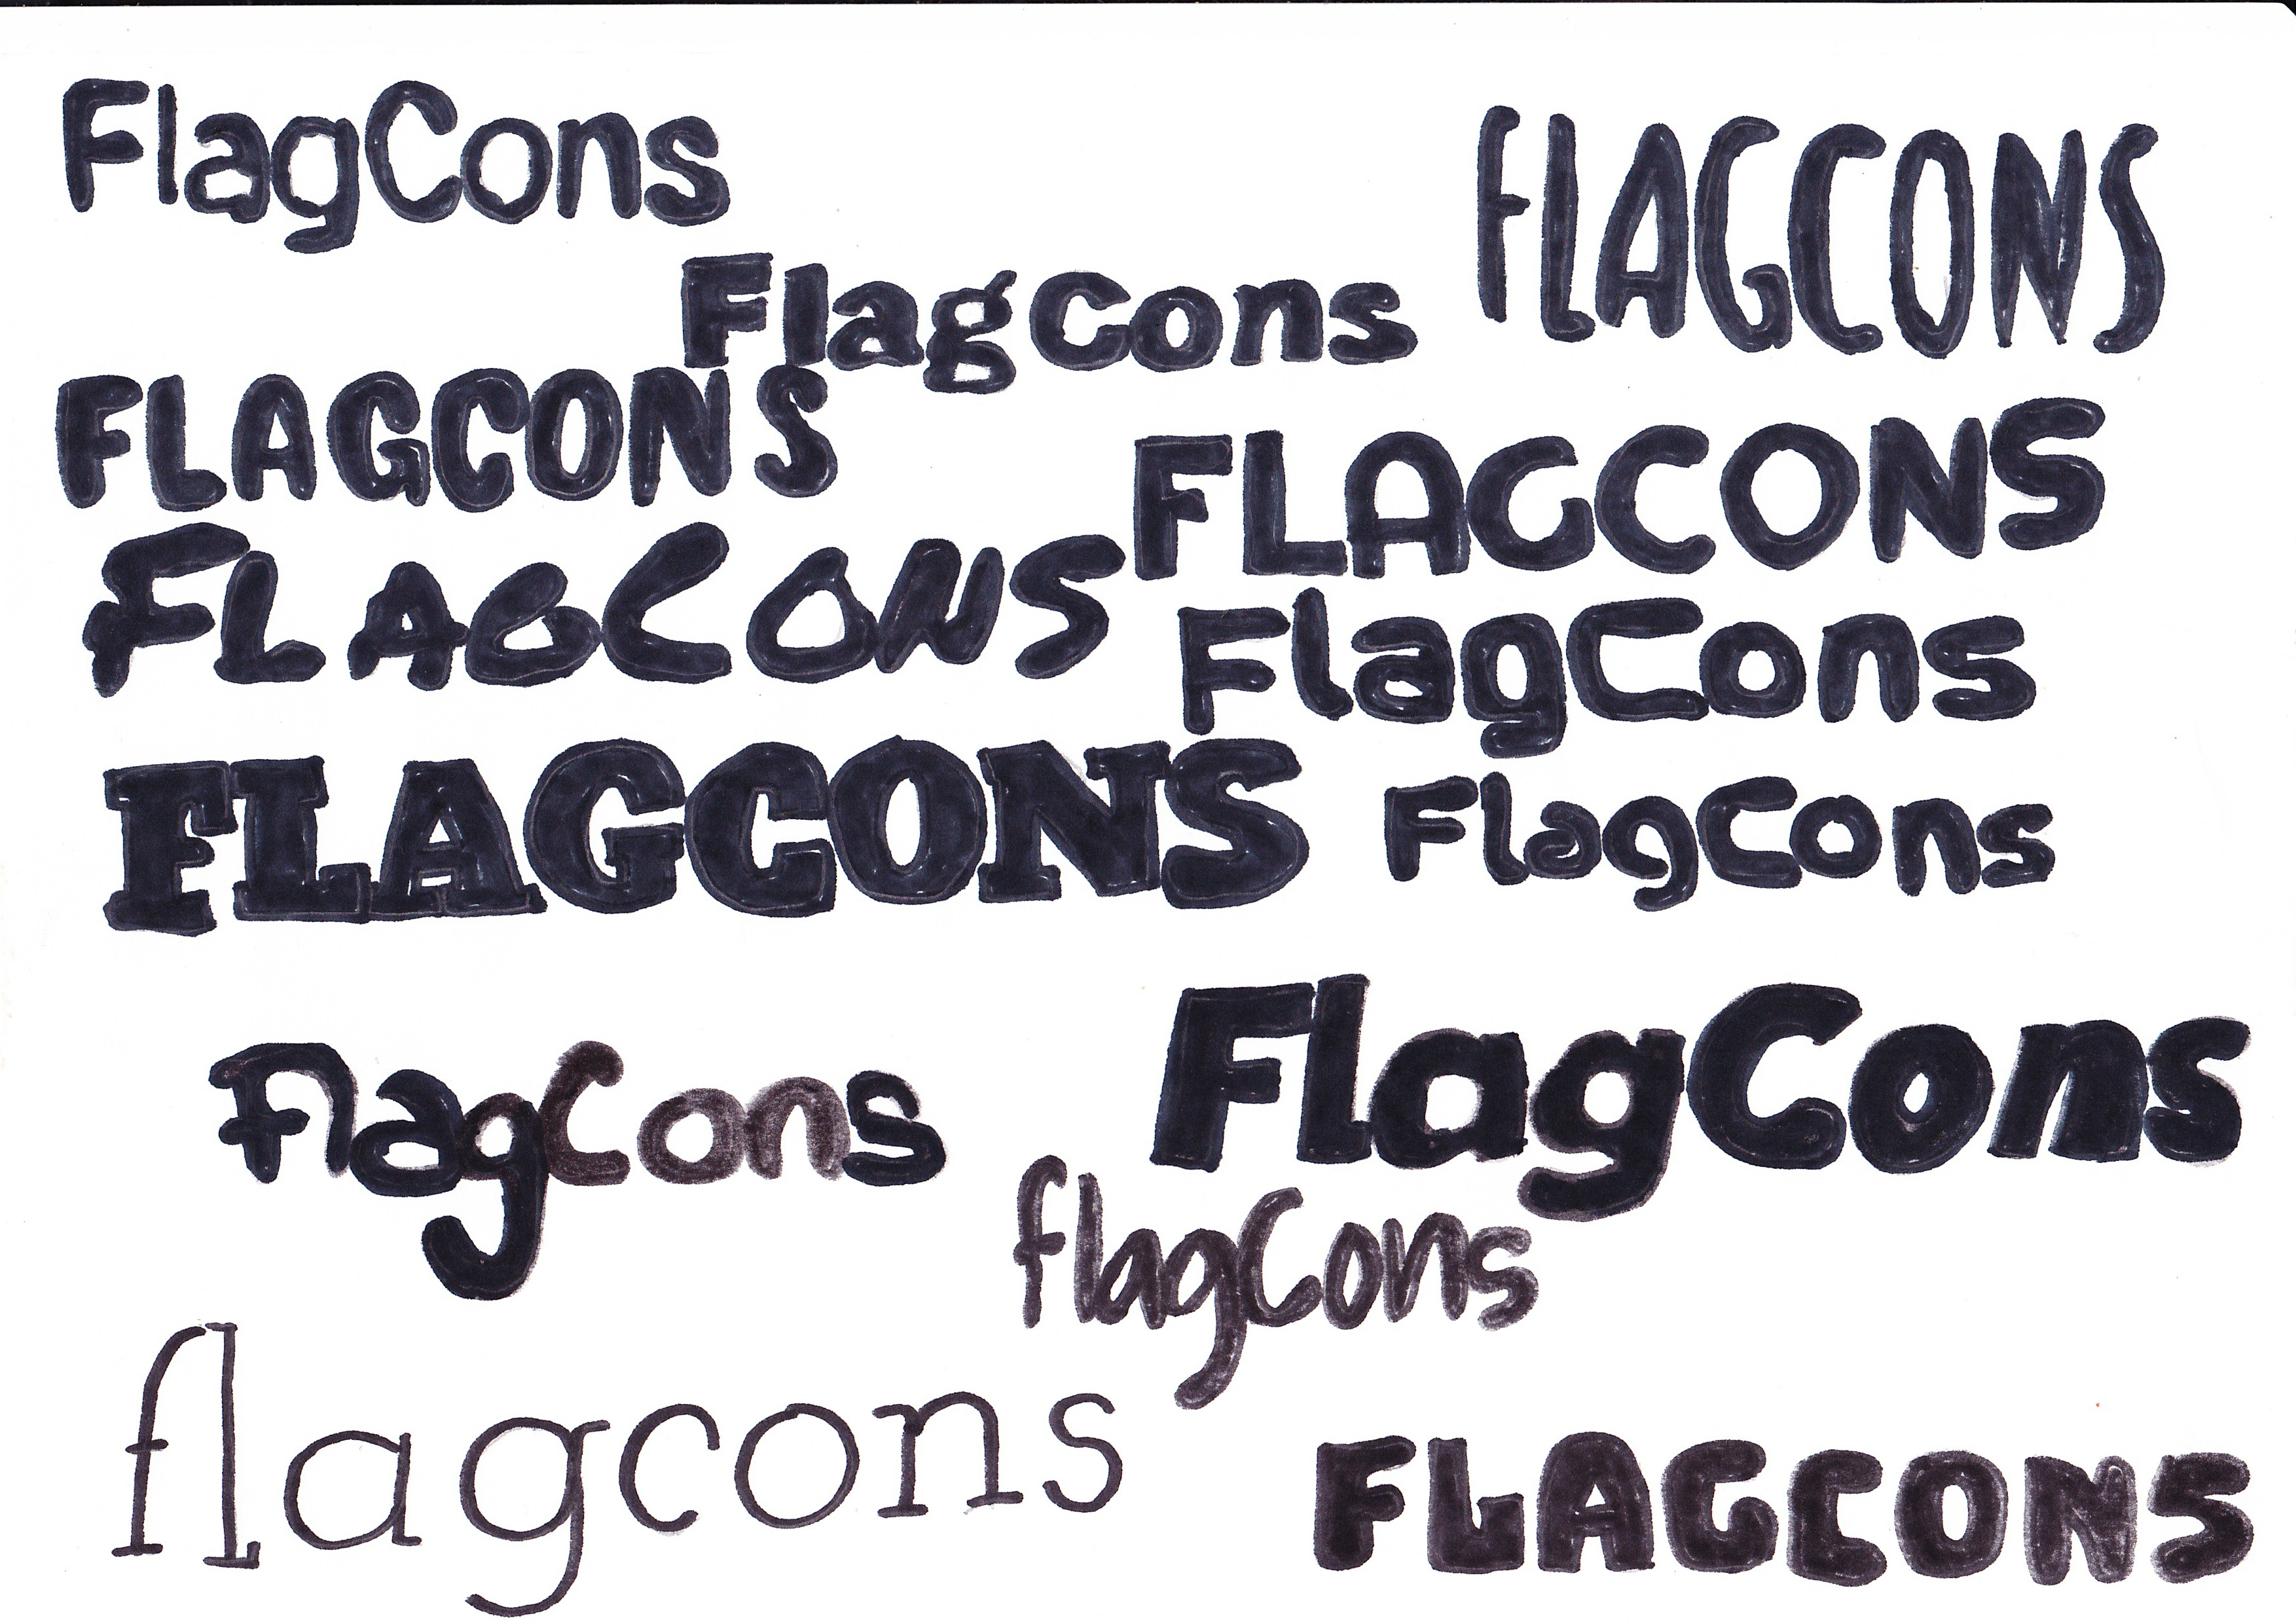 FlagCons
FLAGCONS
Flagcons
FLAGCONS
FLAGCONS
FLAGCONS
FlagCons
FLAGCONS
FlagCons
FlagCons
FlagCons
flagCons
flagcons
FLAGCONS